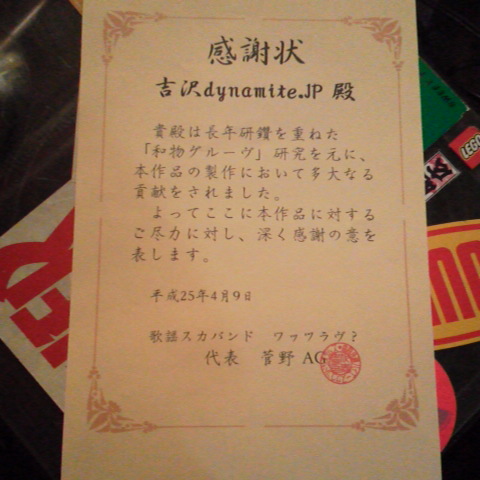 感謝状
吉沢dynamite.JP 殿
貴殿は長年研鑽を重ねた
「和物グルーヴ」研究を元に、
本作品の製作において多大なる
貢献をされました。
よってここに本作品に対する
ご尽力に対し、深く感謝の意を
表します。
平成25年4月9日
歌謡スカバンド ワッツラヴ?
代表 菅野 AG
LEGO